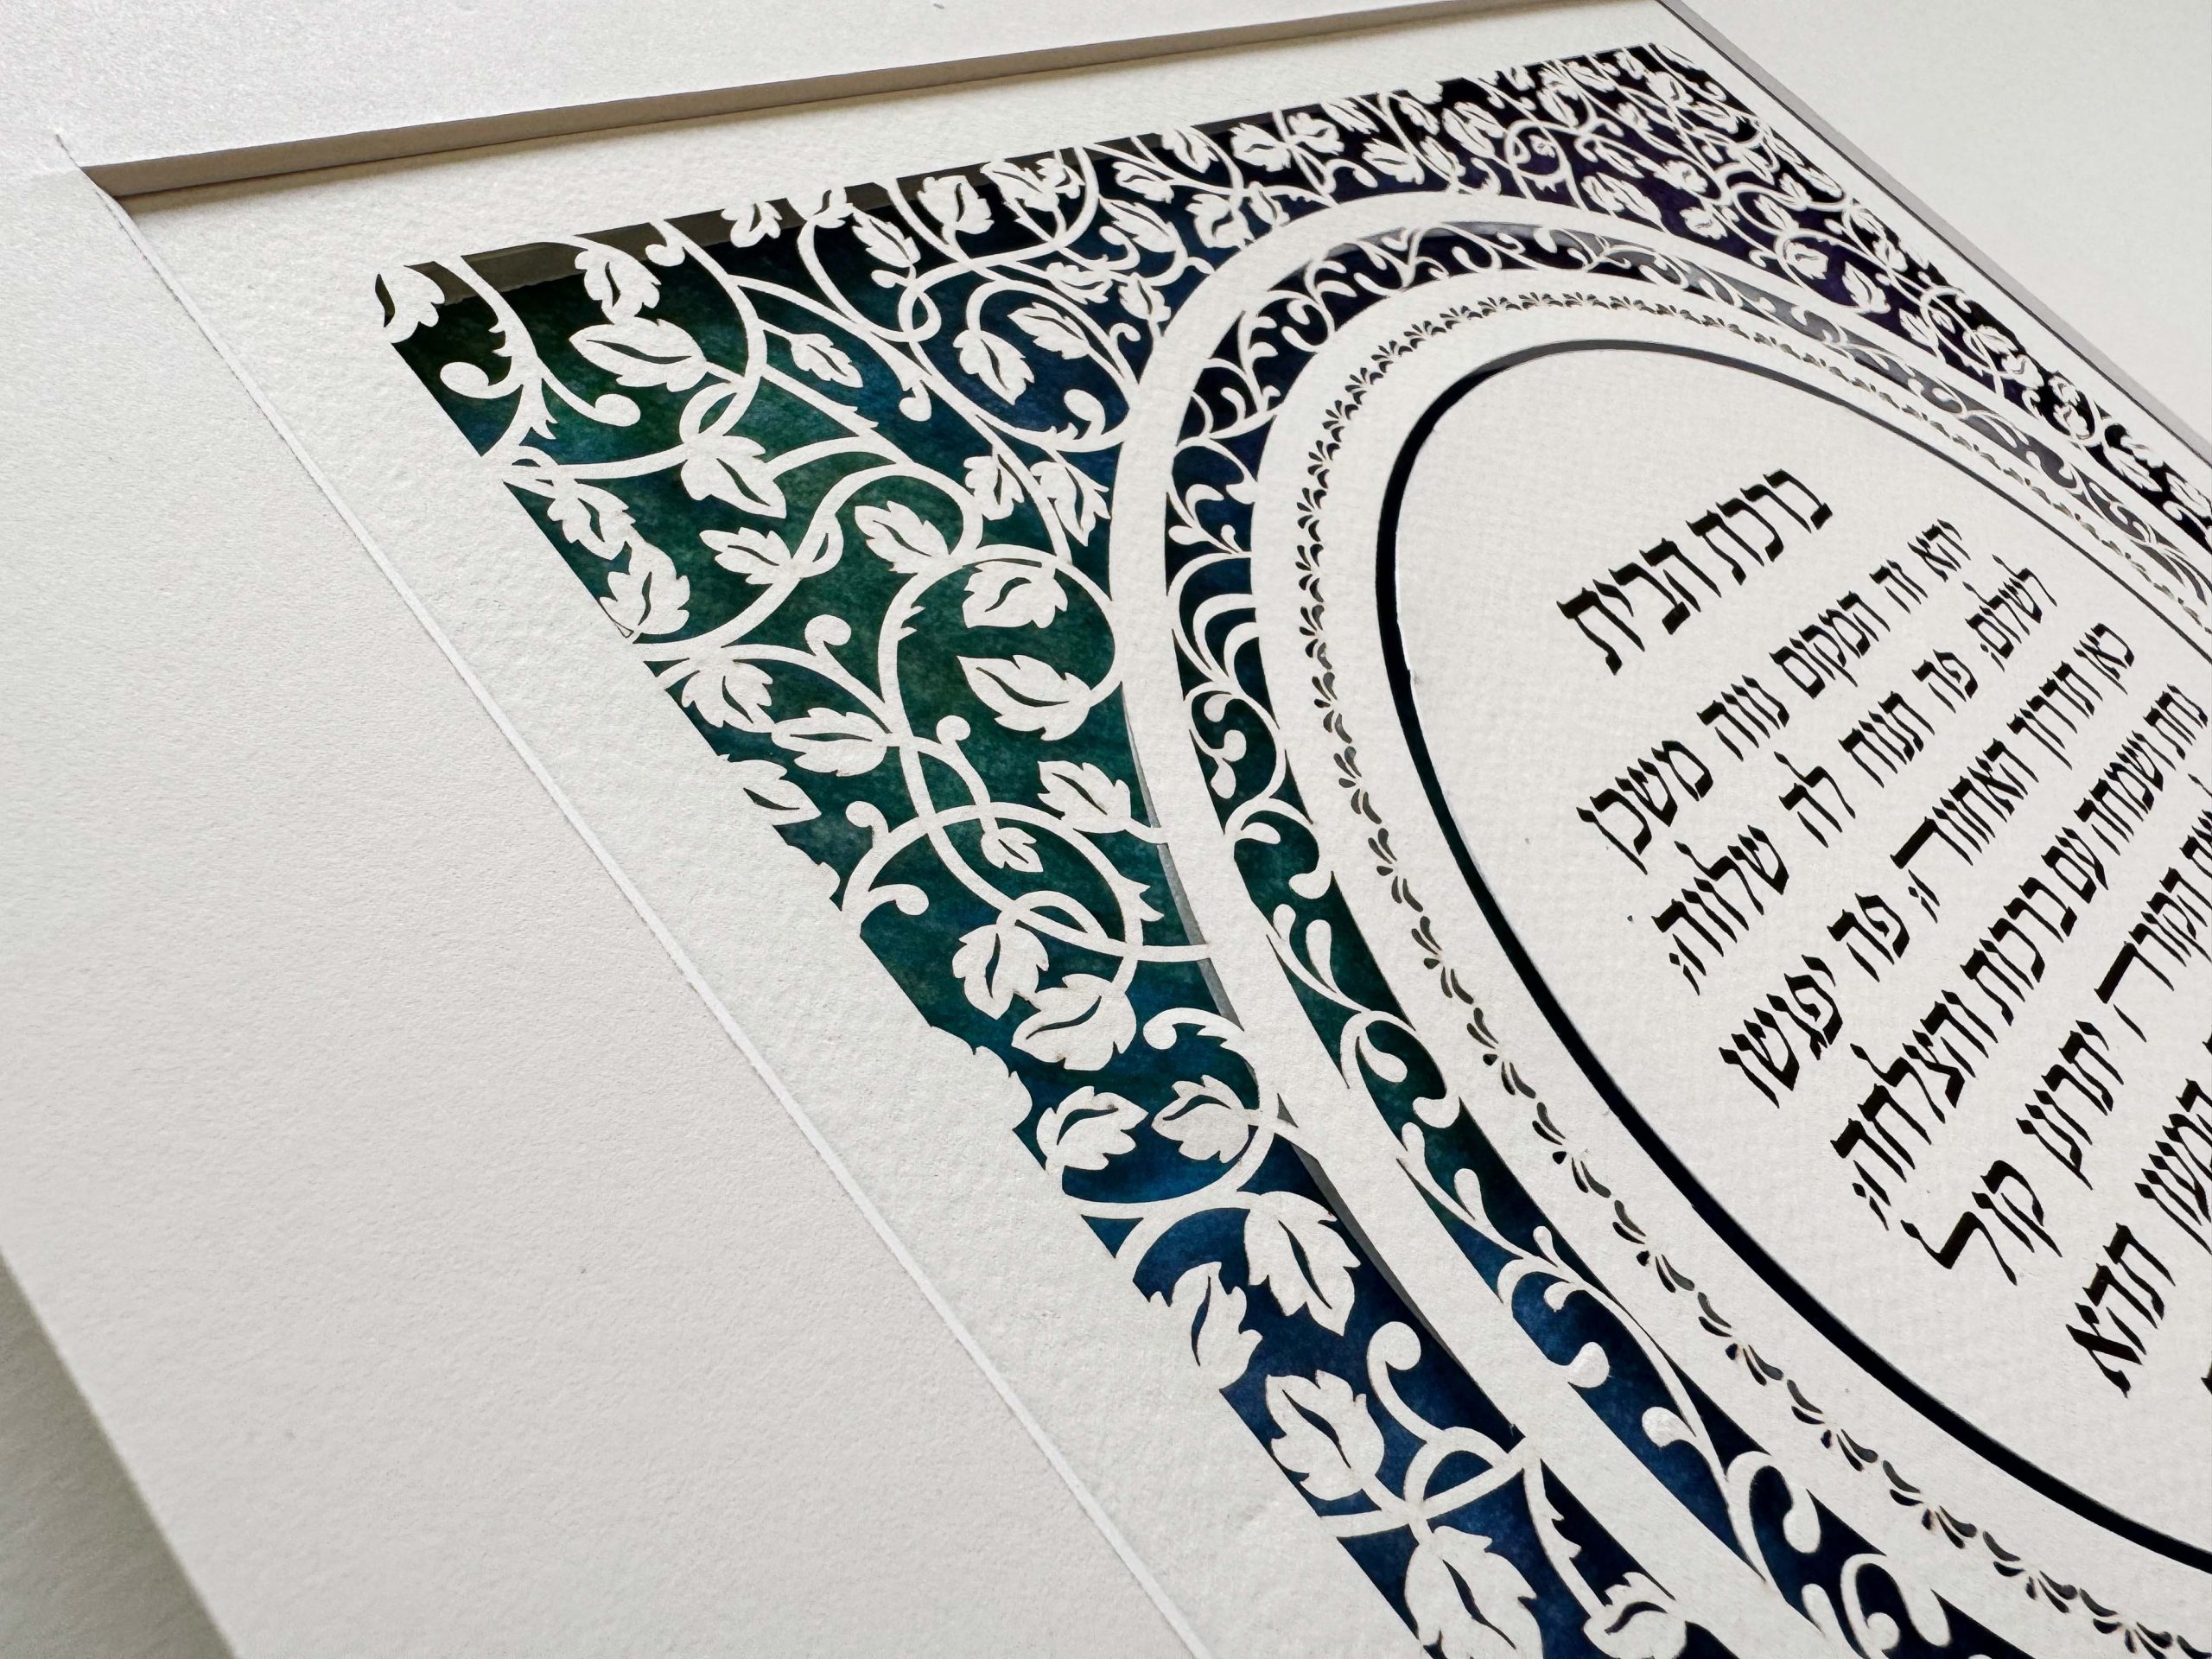 ברכת הבית
יהא זה המקום נווה משכן
לשלום; פה תנוח לה שלווה;
כאן תדרוך האחווה; פה יפגשו
נחת ושמחה עם ברכות והצלחה;
הקורה יתרונן קול
תהא